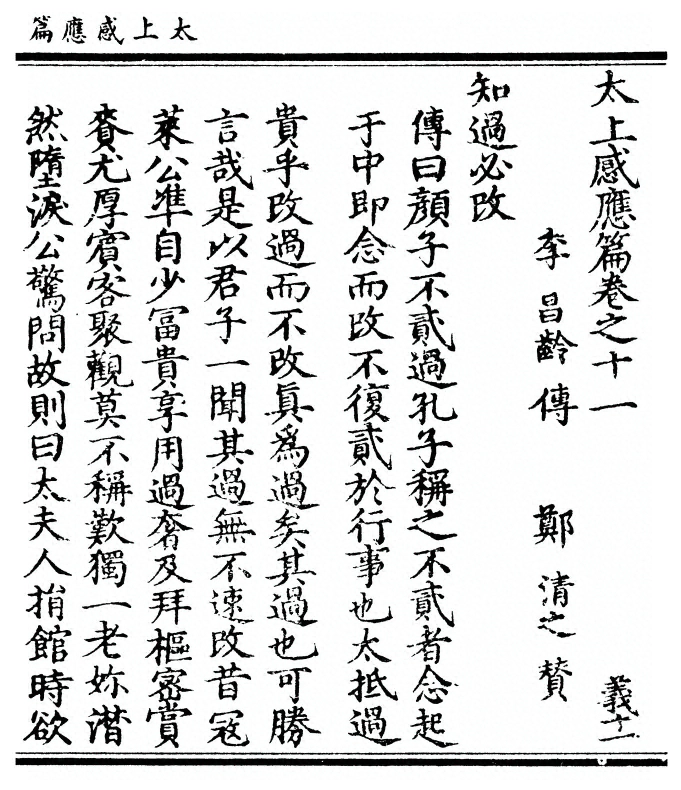 太上感應篇
太上感應篇卷之十一
義十一
李昌齡傳 鄭清之贊
知過必改
傳曰顏子不貳過孔子稱之不貳者念起
于中即念而改不復貳於行事也太抵過
貴乎改過而不改眞爲過矣其過也可勝
言哉是以君子一聞其過無不速改昔冦
萊公準自少冨貴享用過奢及拜樞密賞
賚尤厚賓客聚觀莫不稱歎獨一老妳潸
然墮淚公驚問故則曰太夫人捐館時欲